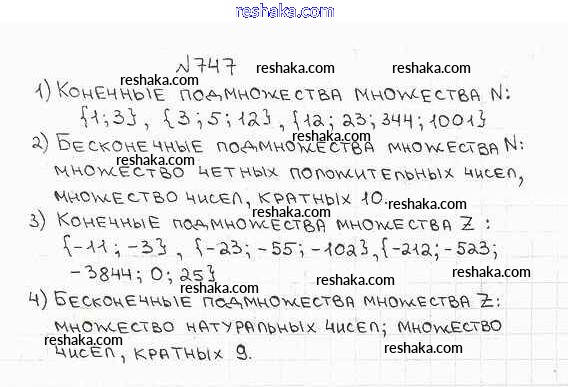 reshaka.com
№747 reshaka.com
reshaka.com
1) Конечные подмножества множества N:
{1; 3}, {3; 5; 12}, {12; 23; 344; 1001}
reshaka.com reshaka.com
2) Бесконечные подмножества множества N:
множество четных положительных чисел,
множество чисел, кратных 10.
reshaka.com reshaka.com
3) Конечные подмножества множества Z:
{-11; -3}, {-23; -55; -102}, {-212; -523;
-3844; 0; 25}
reshaka.com reshaka.com
4) Бесконечные подмножества множества Z:
множество натуральных чисел; множество
чисел, кратных 9.
reshaka.com reshaka.com